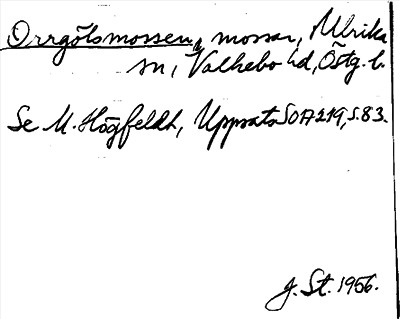 Orrgölsmossen, mossar, Ulrika
sn, Valkebo hd, Östg. l.
Se M. Högfeldt, Uppsats SOA 219, s. 83.
J. St. 1956.